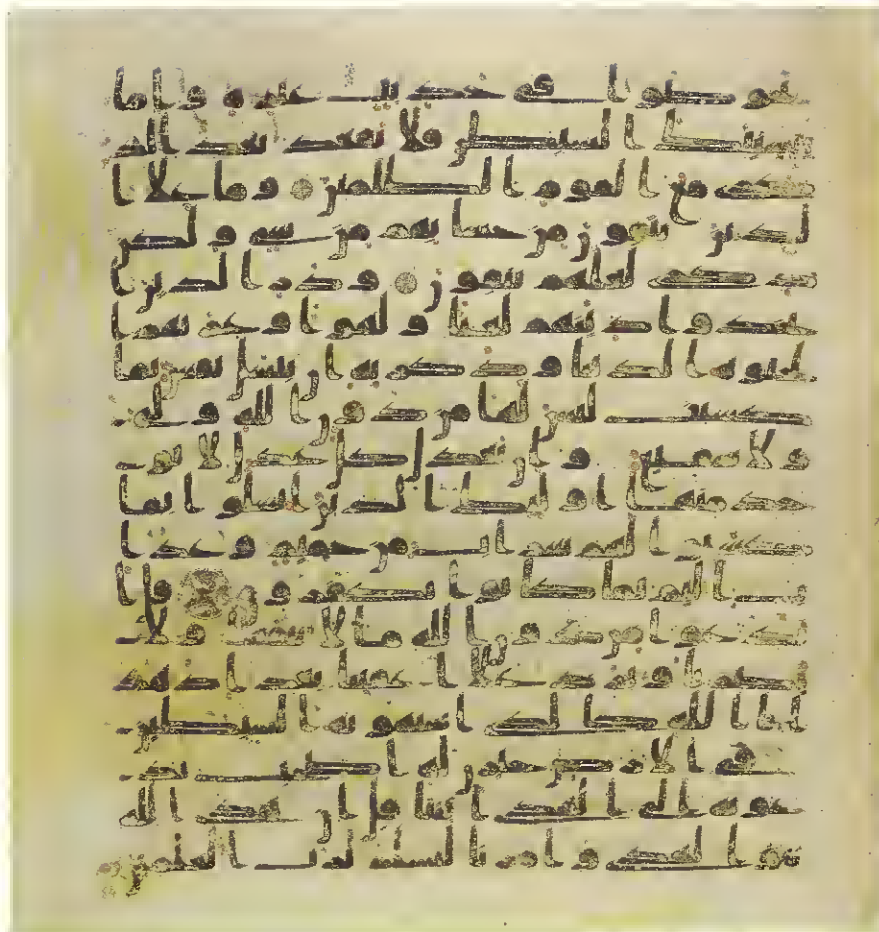 يخوضوا في حديث غيره واما
ينسينك الشيطن فلا تقعد بعد الذ
كرى مع القوم الظلمين وما على ا
لذين يتقون من حسابهم من شي ولكن
ذكرى لعلهم يتقون وذر الذين ا
تخذوا دينهم لعبا ولهوا وغرتهم ا
لحيوة الدنيا وذكر به ان تبسل نفس بما
كسبت ليس لها من دون الله ولي
ولا شفيع وان تعدل كل عدل لا يو
خذ منها اولئك الذين ابسلوا بما
كسبوا لهم شراب من حميم وعذا
ب اليم بما كانوا يكفرون قل ا
ندعوا من دون الله ما لا ينفعنا ولا
يضرنا ونرد على اعقبنا بعد اذ هد
ينا الله كالذي استهوته الشيطين
في الارض حيرن له اصحب يد
عونه الى الهدى ائتنا قل ان هدى الله
هو الهدى وامرنا لنسلم لرب العلمين